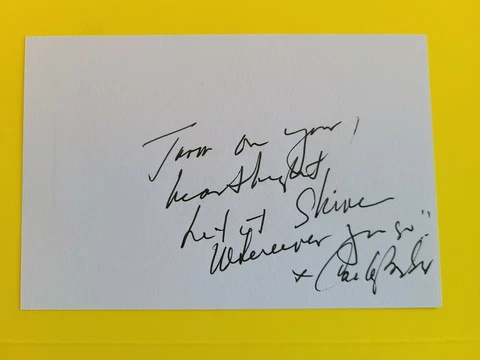 Turn on your
heartlight
Let it Shine
Wherever you go"
x